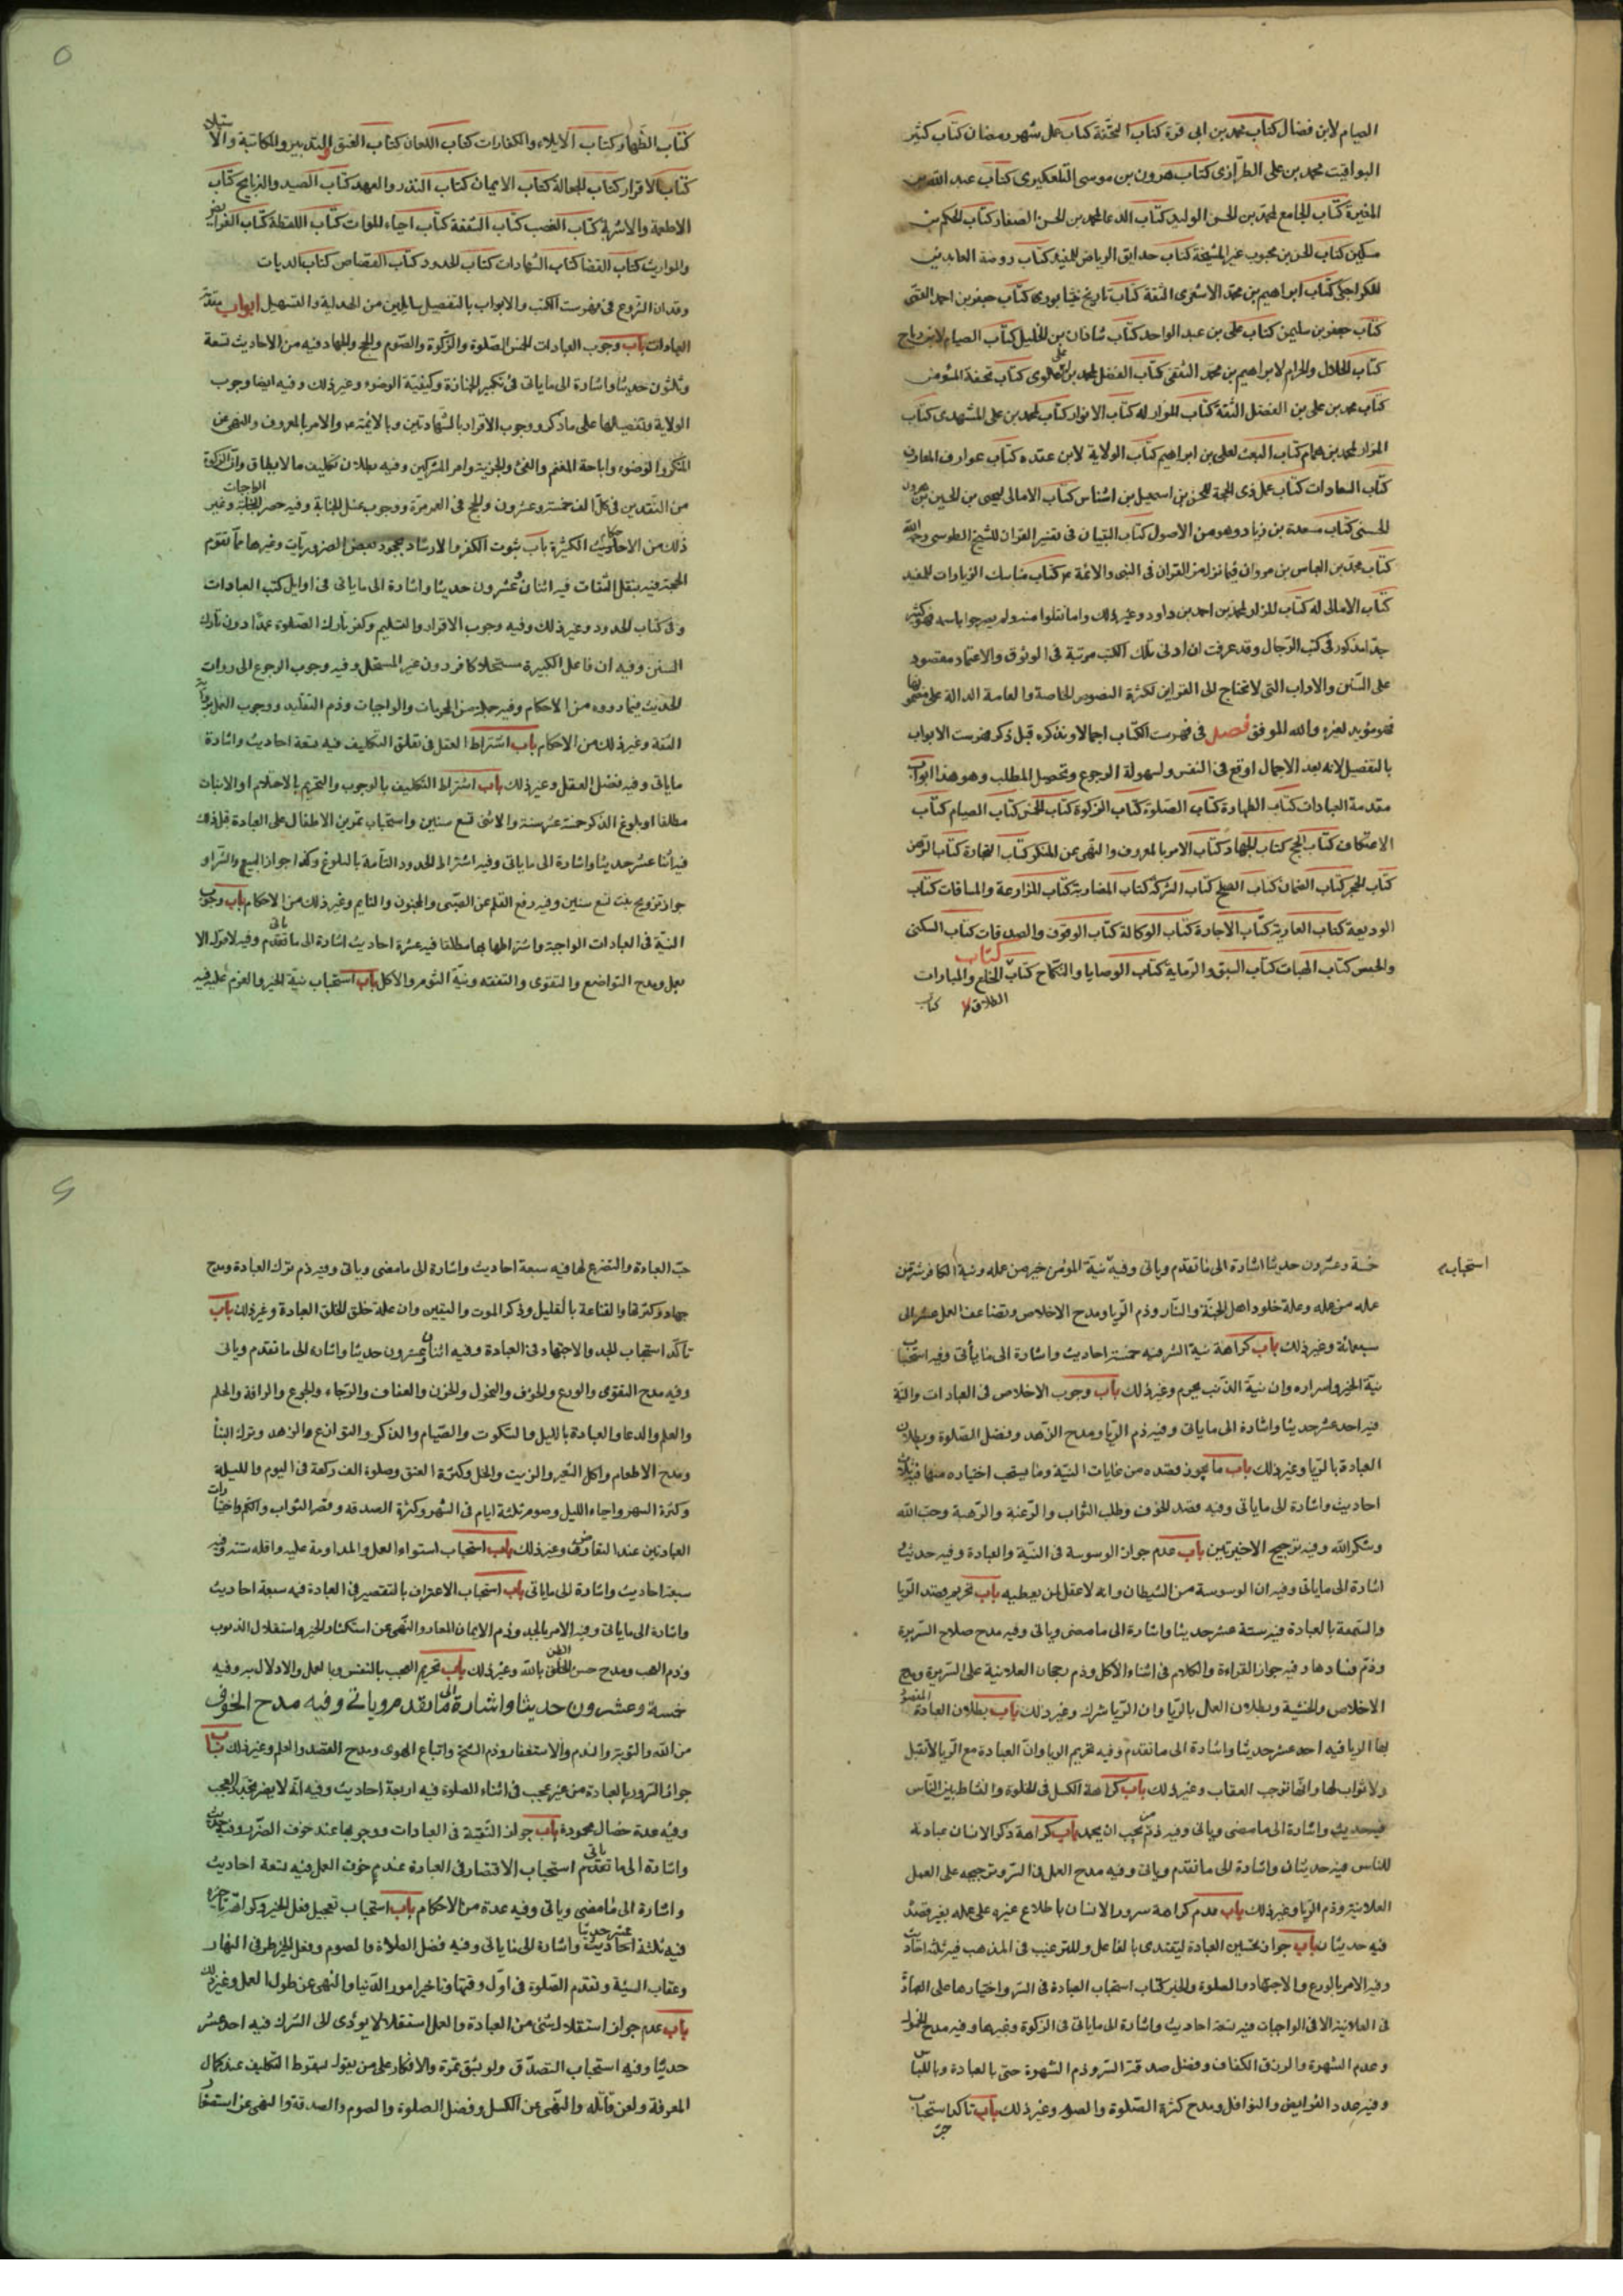 الصيام لابن فضال كتاب محمد بن ابى قرة كتاب كتاب عمل شهر رمضان كتاب كثير
اليواقيت محمد بن على الطرازى كتاب هرون بن موسى التلعكبرى كتاب عبد الله بن
المغيرة كتاب الجامع لمحمد بن الحسن الوليد كتاب الدعا لمحمد بن الحسن الصفار كتاب الحكم بن
مسكين كتاب الحسن بن محبوب غير المشيخة كتاب حدايق الرياض للمفيد كتاب روضة العابدين
للكراجكى كتاب ابراهيم بن محمد الاشعرى الثقة كتاب تاريخ نيشابورى كتاب جعفر بن احمد القمى
كتاب جعفر بن سليمن كتاب على بن عبد الواحد كتاب شاذان بن الخليل كتاب الصيام لابن رباح
كتاب الحلال والحرام لابراهيم بن محمد الثقفى كتاب الفضل لمحمد بن على العلوى كتاب تحفة المؤمن
كتاب محمد بن على بن الفضل الثقة كتاب المزار له كتاب الانوار كتاب لمحمد بن على المشهدى كتاب
المزار لمحمد بن همام كتاب البعث لعلى بن ابراهيم كتاب الولاية لابن عقده كتاب عوارف المعارف
كتاب السعادات كتاب عمل ذى الحجة للحسن بن اسمعيل بن اشناس كتاب الامالى ليحيى بن الحسين بن هرون
الحسنى كتاب مسعدة بن زياد وهو من الاصول كتاب التبيان فى تفسير القران للشيخ الطوسى رحمه الله
كتاب محمد بن العباس بن مروان فيما نزل من القران فى النبى والائمة كتاب مناسك الزيارات للمفيد
كتاب الامالى له كتاب المزار لمحمد بن احمد بن داود وغير ذلك واما ما نقلوا منه ولم يصرحوا باسمه فهو كثير
جدا مذكور فى كتب الرجال وقد عرفت ان ادنى تلك الكتب مرتبة فى الوثوق والاعتماد مقصود
على السنن والاداب التى لا تحتاج الى القراين لكثرة النصوص الخاصة والعامة الدالة على مضمونها
فهو مؤيد لغيره والله الموفق فصل فى فهرست الكتاب اجمالا ونذكره قبل ذكر فهرست الابواب
بالتفصيل لانه بعد الاجمال اوقع فى النفس ولسهولة الرجوع وتحصيل المطلب وهو هذا ابواب
مقدمة العبادات كتاب الطهارة كتاب الصلوة كتاب الزكوة كتاب الخمس كتاب الصيام كتاب
الاعتكاف كتاب الحج كتاب الجهاد كتاب الامر بالمعروف والنهى عن المنكر كتاب التجارة كتاب الرهن
كتاب الحجر كتاب الضمان كتاب الصلح كتاب الشركة كتاب المضاربة كتاب المزارعة والمساقات كتاب
الوديعة كتاب العارية كتاب الاجارة كتاب الوكالة كتاب الوقوف والصدقات كتاب السكنى
والحبس كتاب الهبات كتاب السبق والرماية كتاب الوصايا والنكاح كتاب كتاب الخلع والمبارات
الطلاق كتاب
كتاب الظهار كتاب الايلاء والكفارات كتاب اللعان كتاب العتق والتدبير والمكاتبة والاستيلاد
كتاب الاقرار كتاب الجعالة كتاب الايمان كتاب النذر والعهد كتاب الصيد والذبايح كتاب
الاطعمة والاشربة كتاب الغصب كتاب الشفعة كتاب احياء الموات كتاب اللقطة كتاب الفرايض
والمواريث كتاب القضا كتاب الشهادات كتاب الحدود كتاب القصاص كتاب الديات
وقد ان الشروع فى فهرست الكتب والابواب بالتفصيل سائلين من الهداية والتسهيل ابواب مقدمة
العبادات باب وجوب العبادات الخمس الصلوة والزكوة والصوم والحج والجهاد فيه من الاحاديث تسعة
وثلثون حديثا واشارة الى ما ياتى فى تكبير الجنازة وكيفية الوضوء وغير ذلك وفيه ايضا وجوب
الولاية وتفصيلها على ما ذكر ووجوب الاقرار بالشهادتين وبالائمة والامر بالمعروف والنهى عن
المنكر والوضوء واباحة المغنم والفئ والجزية وامر المشركين وفيه بطلان تكليف ما لا يطاق وان الزكوة
من النقدين فى كل الف خمسة وعشرون والحج فى العمر مرة ووجوب غسل الجنابة وفيه حصر الواجبات وغير
ذلك من الاحكام الكثيرة باب ثبوت الكفر والارتداد بجحود بعض الضروريات وغيرها مما تقوم
الحجة فيه بنقل الثقات فيه اثنان وعشرون حديثا واشارة الى ما ياتى فى اوايل كتب العبادات
وفى كتاب الحدود وغير ذلك وفيه وجوب الاقرار والتسليم وكفر تارك الصلوة عمدا دون تارك
السنن وفيه ان فاعل الكبيرة مستحلا كافر دون غير المستحل وفيه وجوب الرجوع الى روات
الحديث فيما رووه من الاحكام وفيه جملة من المحرمات والواجبات وذم التقليد ووجوب العمل
الثقة وغير ذلك من الاحكام باب اشتراط العقل فى تعلق التكليف فيه تسعة احاديث واشارة
ما ياتى وفيه فضل العقل وغير ذلك باب اشتراط التكليف بالوجوب والتحريم بالاحتلام او الانبات
مطلقا او بلوغ الذكر خمسة عشر سنة والانثى تسع سنين واستحباب تمرين الاطفال على العبادة قبل ذلك
فيه اثنا عشر حديثا واشارة الى ما ياتى وفيه اشتراط الحدود التامة بالبلوغ وكذا جواز البيع والشراء و
جواز تزويج بنت تسع سنين وفيه رفع القلم عن الصبى والمجنون والنايم وغير ذلك من الاحكام باب وجوب
النية فى العبادات الواجبة واشتراطها بها مطلقا فيه عشرة احاديث اشارة الى ما ياتى وفيه لا قول الا
بعمل ومدح التواضع والتقوى والتفقه ونية النوم والاكل باب استحباب نية الخير والعزم عليه فيه
استحباب
خمسة وعشرون حديثا اشارة الى ما تقدم وياتى وفيه نية المؤمن خير من عمله ونية الكافر شر من
عمله من عمله وعلة خلود اهل الجنة والنار وذم الريا ومدح الاخلاص وتضاعف العمل عشرة الى
سبعمائة وغير ذلك باب كراهة نية الشر فيه خمسة احاديث واشارة الى ما يأتى وفيه استحباب
نية الخير واسراره وان نية الذنب يحرم وغير ذلك باب وجوب الاخلاص فى العبادات والنية
فيه احد عشر حديثا واشارة الى ما ياتى وفيه ذم الريا ومدح الزهد وفضل الصلوة وبطلان
العبادة بالريا وغير ذلك باب ما يجوز قصده من غايات النية وما يستحب اختياره منها فيه ثلاث
احاديث واشارة الى ما ياتى وفيه قصد الخوف وطلب الثواب والرغبة والرهبة وحب الله
وشكر الله وفيه ترجيح الاخيرتين باب عدم جواز الوسوسة فى النية والعبادة وفيه حديث
اشارة الى ما ياتى وفيه ان الوسوسة من الشيطان وانه لا عقل لمن يعطيه باب تحريم قصد الريا
والسمعة بالعبادة فيه ستة عشر حديثا واشارة الى ما مضى وياتى وفيه مدح صلاح السريرة
وذم فسادها وفيه جواز القراءة والكلام فى اثناء الاكل وذم رجحان العلانية على السريرة ومدح
الاخلاص والخشية وبطلان العمل بالريا وان الريا شرك وغير ذلك باب بطلان العبادة المقصود
بها الريا فيه احد عشر حديثا واشارة الى ما تقدم وفيه تحريم الريا وان العبادة مع الريا لا تقبل
ولا ثواب لها وانها توجب العقاب وغير ذلك باب كراهة الكسل فى الخلوة والنشاط بين الناس
فيه حديث واشارة الى ما مضى وياتى وفيه ذم من يحب ان يحمد باب كراهة ذكر الانسان عبادته
للناس فيه حديثان واشارة الى ما تقدم وياتى وفيه مدح العمل فى السر وترجيحه على العمل
العلانية وذم الريا وغير ذلك باب عدم كراهة سرور الانسان باطلاع غيره على عمله بغير قصد
فيه حديثان باب جواز تحسين العبادة ليقتدى بالفاعل وللترغيب فى المذهب فيه ثلثة احاديث
وفيه الامر بالورع والاجتهاد والصلوة والخير كتاب استحباب العبادة فى السر واختيارها على العبادة
فى العلانية الا فى الواجبات فيه تسعة احاديث واشارة الى ما ياتى فى الزكوة وغيرها وفيه مدح الخمول
وعدم الشهرة والرزق الكفاف وفضل صدقة السر وذم الشهرة حتى بالعبادة وباللباس
وفيه عدد الفرايض والنوافل ومدح كثرة الصلوة والصوم وغير ذلك باب تاكد استحباب
حب
حب العبادة والتفرغ لها فيه سبعة احاديث واشارة الى ما مضى وياتى وفيه ذم ترك العبادة ومدح
جهاد وكثرتها والقناعة بالقليل وذكر الموت واليقين وان علة خلق الخلق العبادة وغير ذلك باب
تاكد استحباب الجد والاجتهاد فى العبادة وفيه اثنان وعشرون حديثا واشارة الى ما تقدم وياتى
وفيه مدح التقوى والورع والخوف والنحول والحزن والعفاف والرجاء والجوع والرافة والحلم
والعلم والدعا والعبادة بالليل والسكوت والصيام والذكر والتواضع والزهد وترك البنا
ومدح الاطعام واكل الشعير والزيت والخل وكثرة العتق وصلوة الف ركعة فى اليوم والليلة
وكثرة السهر واحياء الليل وصوم ثلثة ايام فى الشهر وكثرة الصدقه وقصر الثواب والكم واختيارات
العبادتين عند التعارض وغير ذلك باب استحباب استواء العمل والمداومة عليه واقله سنة وفيه
سبعة احاديث واشارة الى ما ياتى باب استحباب الاعتراف بالتقصير فى العبادة فيه سبعة احاديث
واشارة الى ما ياتى وفيه الامر بالجد وذم الايمان المعار والنهى عن استكثار الخير واستقلال الذنوب
وذم العجب ومدح حسن الظن بالله وغير ذلك باب تحريم العجب بالنفس وبالعمل والادلال به وفيه
خمسة وعشرون حديثا واشارة الى ما تقدم وياتى وفيه مدح الخوف
من الله والتوبة والندم والاستغفار وذم الشح واتباع الهوى ومدح القصد والعلم وغير ذلك باب
جواز السرور بالعبادة من غير عجب فى اثناء الصلوة فيه اربعة احاديث وفيه انه لا يضر تجدد العجب
وفيه عدة خصال محمودة باب جواز التقية فى العبادات ووجوبها عند خوف الضرر وفيه حديث
واشارة الى ما ياتى استحباب الاقتصار فى العبادة عند خوف الملل فيه تسعة احاديث
واشارة الى ما مضى وياتى وفيه عدة من الاحكام باب استحباب تعجيل فعل الخير وكراهة تاخيره
فيه ثلثة عشر حديثا واشارة الى ما ياتى وفيه فضل الصلاة والصوم وفعل الخير طرفى النهار
وعقاب السيئة وتقدم الصلوة فى اول وقتها وتاخير امور الدنيا والنهى عن طول الامل وغير ذلك
باب عدم جواز استقلال شئ من العبادة والعمل استقلالا يؤدى الى الترك فيه احد عشر
حديثا وفيه استحباب التصدق ولو بشق تمرة والانكار على من يقول بسقوط التكليف عند كمال
المعرفة ولعن قائله والنهى عن الكسل وفضل الصلوة والصوم والصدقة والنهى عن استصغار